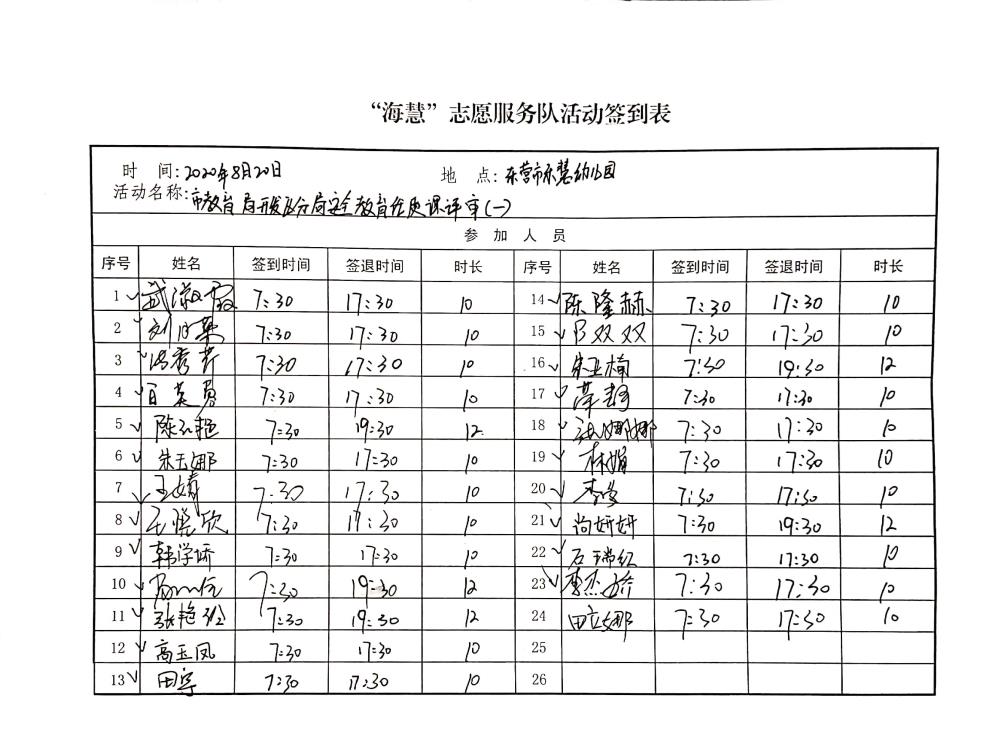 “海慧”志愿服务队活动签到表
时 间：2020年8月20日 地 点：东营市永慧幼儿园
活动名称：市教育局开发区分局安全教育优质课评审（一）
参 加 人 员
序号 姓名 签到时间 签退时间 时长 序号 姓名 签到时间 签退时间 时长
1 武淑霞 7:30 17:30 10 14 陈隆赫 7:30 17:30 10
2 刘月荣 7:30 17:30 10 15 双双 7:30 17:30 10
3 秀芹 7:30 17:30 10 16 朱亚楠 7:30 19:30 12
4 英勇 7:30 17:30 10 17 7:30 17:30 10
5 陈艳 7:30 19:30 12 18 娜娜 7:30 17:30 10
6 朱玉娜 7:30 17:30 10 19 林娟 7:30 17:30 10
7 王婧 7:30 17:30 10 20 李 7:30 17:30 10
8 王晓欣 7:30 17:30 10 21 尚妍妍 7:30 19:30 12
9 韩学娇 7:30 17:30 10 22 石瑞红 7:30 17:30 10
10 7:30 19:30 12 23 李杰娇 7:30 17:30 10
11 张艳玲 7:30 19:30 12 24 田立娜 7:30 17:30 10
12 高玉凤 7:30 17:30 10 25
13 田宇 7:30 17:30 10 26